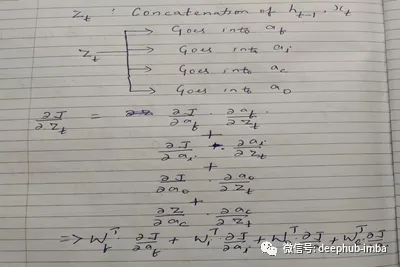 Z_t : Concatenation of h_{t-1}, x_t
Z_t → Goes into a_f
→ Goes into a_i
→ Goes into a_c
→ Goes into a_o
∂J/∂Z_t = ∂J/∂a_f · ∂a_f/∂Z_t
+
∂J/∂a_i · ∂a_i/∂Z_t
+
∂J/∂a_o · ∂a_o/∂Z_t
+
∂Z/∂a_c · ∂a_c/∂Z_t
=> W_f^T · ∂J/∂a_f + W_i^T · ∂J/∂a_i + W^T ∂J + W^T ∂J
微信号: deephub-imba